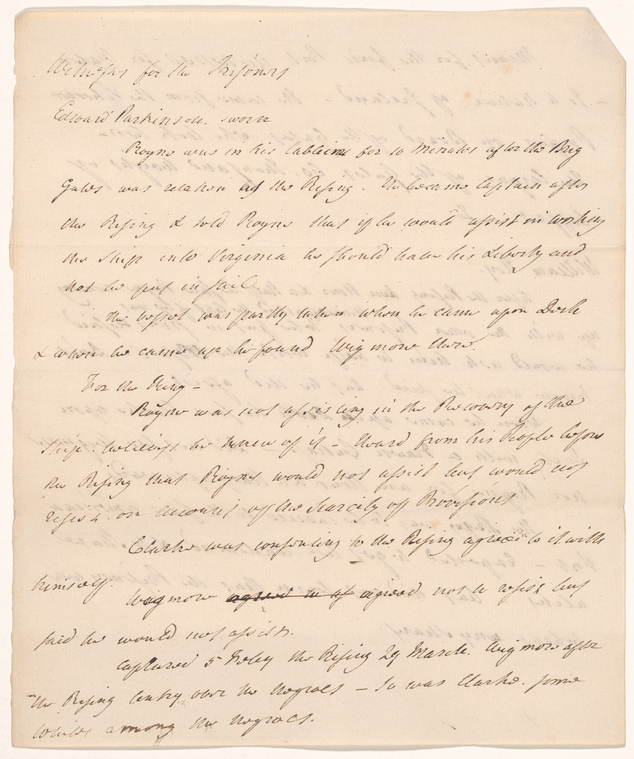 Witnesses for the Prisoners
Edward Parkinson. sworn
Royne was in his cabbin for 10 Minutes after the Brig
Gates was retaken of the Rising. He became Captain after
the Rising & told Royne that if he would assist in working
the Ship into Virginia he should have his Liberty and
not be put in jail
The vessel was partly taken when he came upon Deck
& when he came up he found Wigmore there.
For the King –
Royne was not assisting in the Recovery of the
Ship. believes he knew of it – heard from his People before
the Rising that Royne would not assist but would not
resist on account of the Scarcity of Provisions
Clarke was consenting to the Rising agreed to it with
himself.
Wigmore agreed to of agreed not to resist but
said he would not assist.
Captured 5 the Rising 29 March. Wigmore after
the Rising Centry over the Negroes – So was Clarke. some
whites among the Negroes.